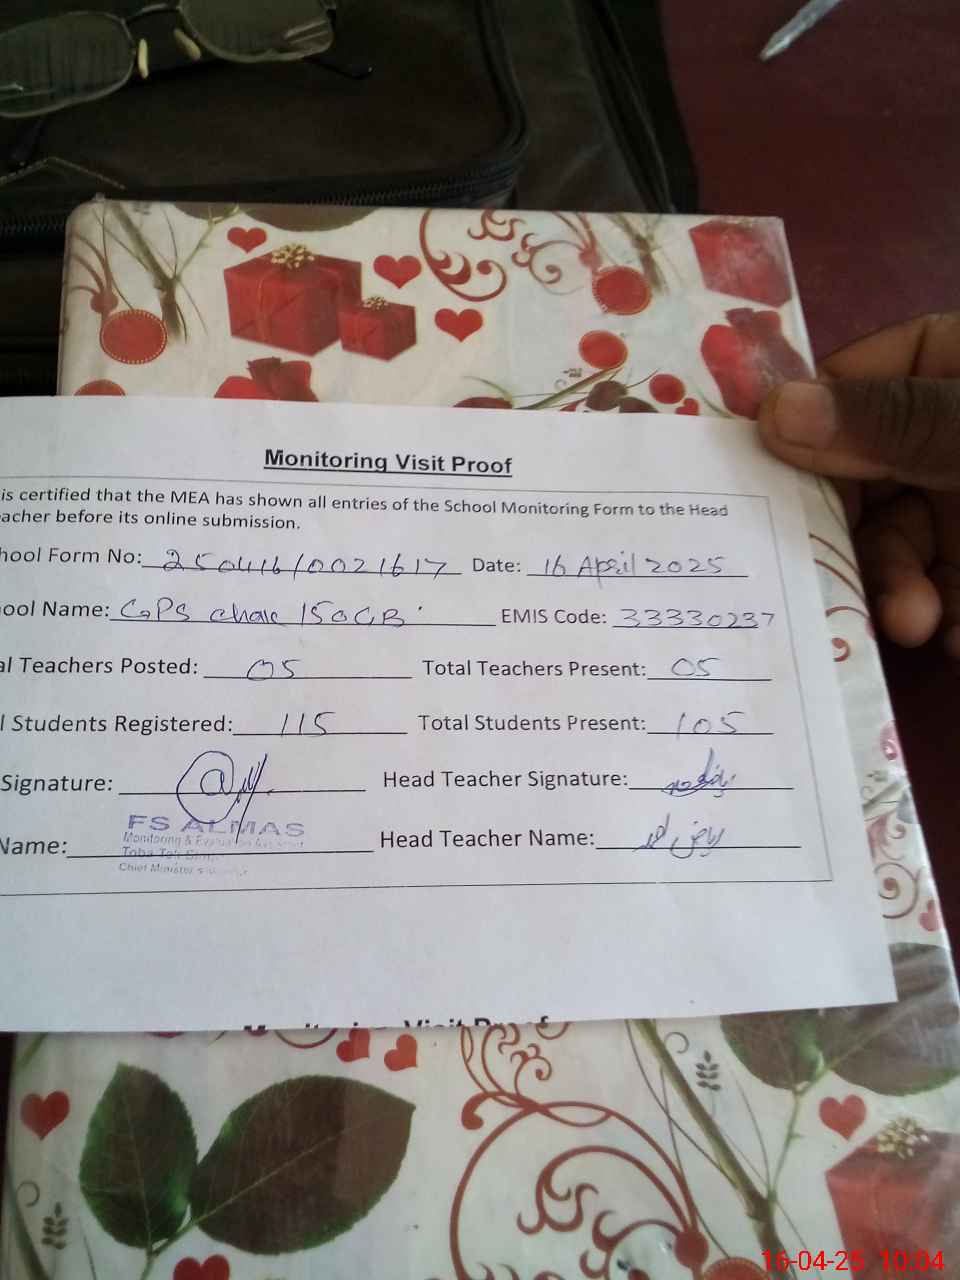 Monitoring Visit Proof
is certified that the MEA has shown all entries of the School Monitoring Form to the Head
acher before its online submission.
hool Form No: 250416/0021617 Date: 16 April 2025
ool Name: GPS chak 150GB EMIS Code: 33330237
al Teachers Posted: 05 Total Teachers Present: 05
l Students Registered: 115 Total Students Present: 105
Signature: Head Teacher Signature:
FS ALMAS
Monitoring & Evaluation Assistant
Name: Head Teacher Name: ریاض احمد
Toba Tek Singh
Chief Minister's
Monitoring Visit Proof
16-04-25 10:04